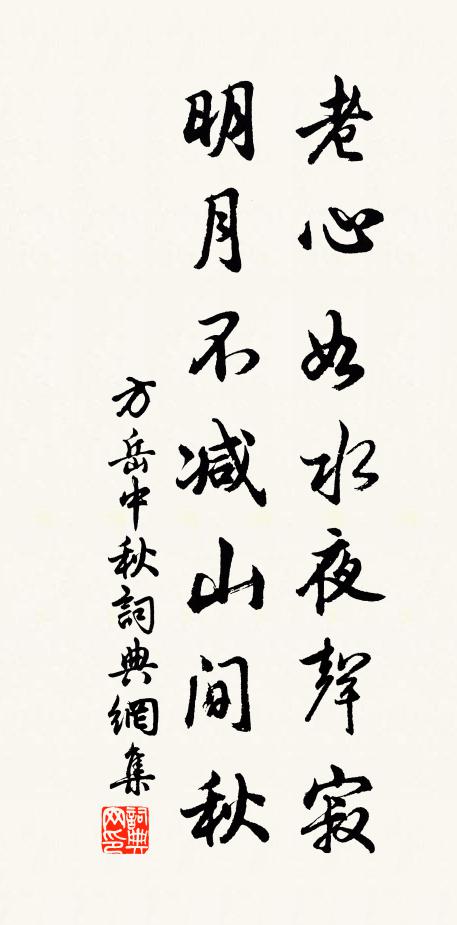 老心如水夜聲寂
明月不减山间秋
方岳中秋詞典網集
詞典网印